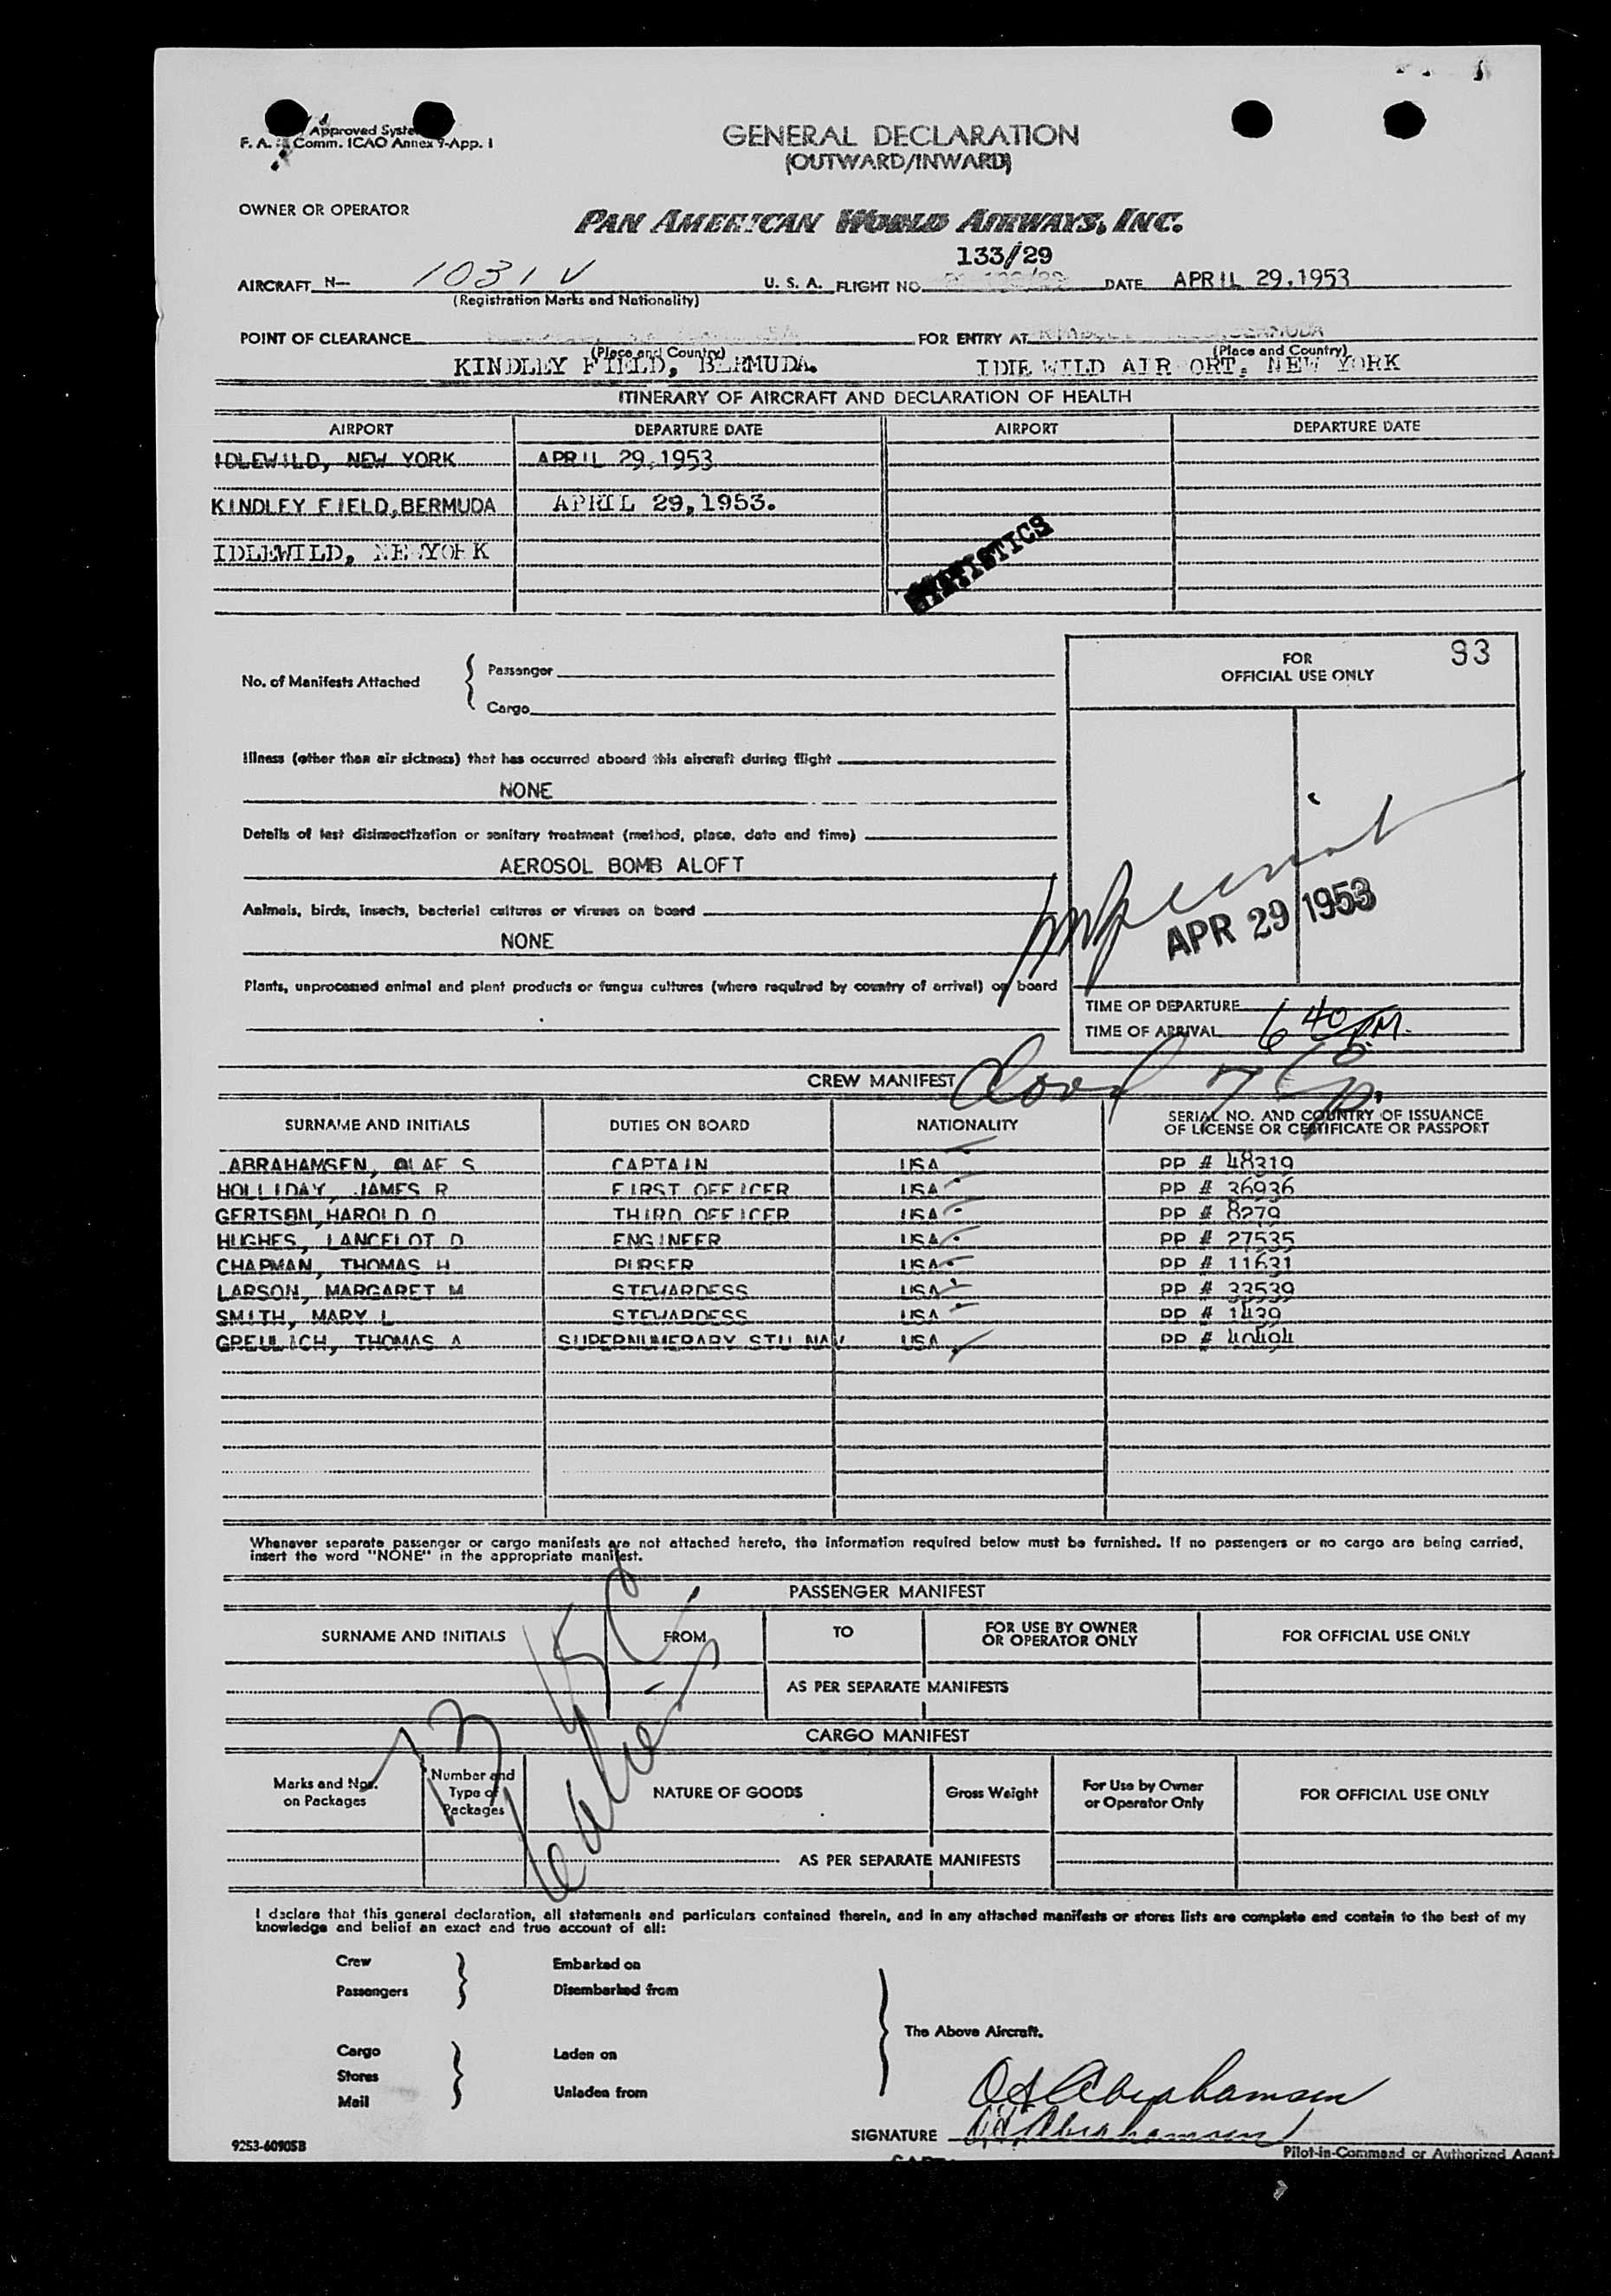 Approved Syste
F. A. Comm. ICAO Annex 9-App. 1
GENERAL DECLARATION
(OUTWARD/INWARD)
OWNER OR OPERATOR
PAN AMERICAN WORLD AIRWAYS, INC.
133/29
AIRCRAFT N— 1031V U. S. A. FLIGHT NO. DATE APRIL 29,1953
(Registration Marks and Nationality)
POINT OF CLEARANCE FOR ENTRY AT BERMUDA
(Place and Country) (Place and Country)
KINDLEY FIELD, BERMUDA. IDLEWILD AIRPORT, NEW YORK
ITINERARY OF AIRCRAFT AND DECLARATION OF HEALTH
AIRPORT DEPARTURE DATE AIRPORT DEPARTURE DATE
IDLEWILD, NEW YORK APRIL 29,1953
KINDLEY FIELD,BERMUDA APRIL 29,1953.
IDLEWILD, NEWYORK
STATISTICS
FOR 93
OFFICIAL USE ONLY
No. of Manifests Attached { Passenger
Cargo
Illness (other than air sickness) that has occurred aboard this aircraft during flight
NONE
Details of last disinsectization or sanitary treatment (method, place, date and time)
AEROSOL BOMB ALOFT
Animals, birds, insects, bacterial cultures or viruses on board
NONE
APR 29 1953
Plants, unprocessed animal and plant products or fungus cultures (where required by country of arrival) on board
TIME OF DEPARTURE
TIME OF ARRIVAL 6 40 PM.
CREW MANIFEST
SURNAME AND INITIALS DUTIES ON BOARD NATIONALITY SERIAL NO. AND COUNTRY OF ISSUANCE
OF LICENSE OR CERTIFICATE OR PASSPORT
ABRAHAMSEN, OLAF S CAPTAIN USA PP # 48319
HOLLIDAY, JAMES R FIRST OFFICER USA PP # 36936
GERTSEN,HAROLD O THIRD OFFICER USA PP # 8279
HUGHES, LANCELOT D ENGINEER USA PP # 27535
CHAPMAN, THOMAS H PURSER USA PP # 11631
LARSON, MARGARET M STEWARDESS USA PP # 33539
SMITH, MARY L STEWARDESS USA PP # 1439
GREULICH, THOMAS A SUPERNUMERARY STU NAV USA PP # 40494
Whenever separate passenger or cargo manifests are not attached hereto, the information required below must be furnished. If no passengers or no cargo are being carried,
insert the word "NONE" in the appropriate manifest.
PASSENGER MANIFEST
SURNAME AND INITIALS FROM TO FOR USE BY OWNER
OR OPERATOR ONLY FOR OFFICIAL USE ONLY
AS PER SEPARATE MANIFESTS
CARGO MANIFEST
Marks and Nos.
on Packages Number and
Type of
Packages NATURE OF GOODS Gross Weight For Use by Owner
or Operator Only FOR OFFICIAL USE ONLY
AS PER SEPARATE MANIFESTS
I declare that this general declaration, all statements and particulars contained therein, and in any attached manifests or stores lists are complete and contain to the best of my
knowledge and belief an exact and true account of all:
Crew Embarked on
Passengers Disembarked from
The Above Aircraft.
Cargo Laden on
Stores
Mail Unladen from
O S Abrahamsen
SIGNATURE O.S. Abrahamsen
9253-6090SB Pilot-in-Command or Authorized Agent